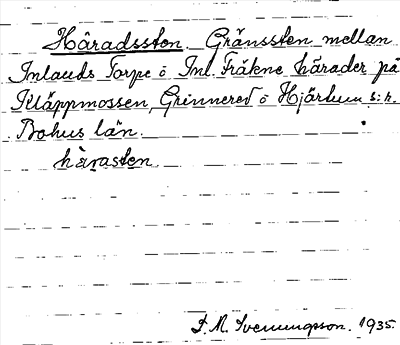 Häradssten. Gränssten mellan
Inlands Torpe o Inl. Fräkne härader på
Kläppmossen, Grinnered o Hjärtum s:n.
Bohus län.
hàrasten
F. M. Svenungsson. 1935.